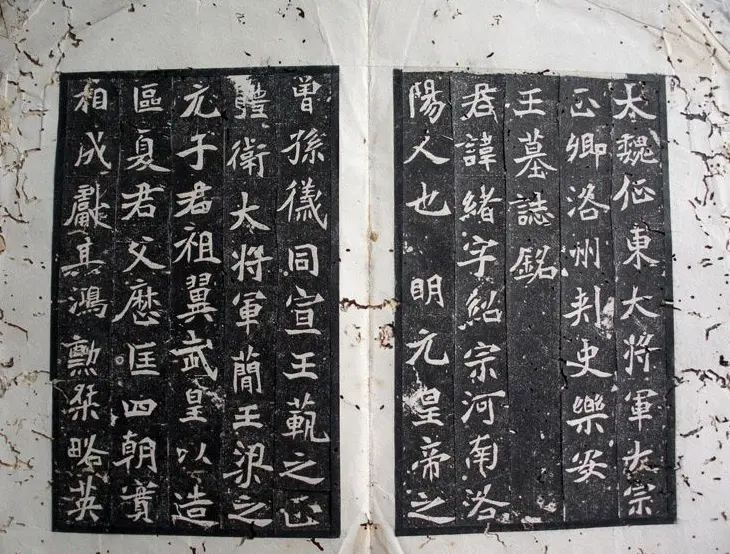 大魏征東大將軍大宗
正卿洛州刺史樂安
王墓誌銘
君諱緒字紹宗河南洛
陽人也 明元皇帝之
曾孫儀同宣王範之正
體衛大將軍蕳王梁之
元子君祖翼武皇以造
區夏君父歷匡四朝實
相成獻其鴻勲桀略英